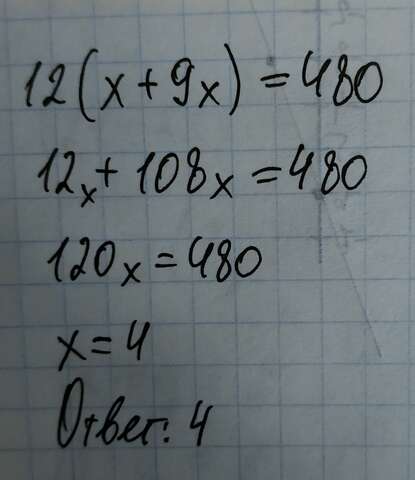 12(x+9x)=480
12x+108x=480
120x=480
x=4
Ответ: 4